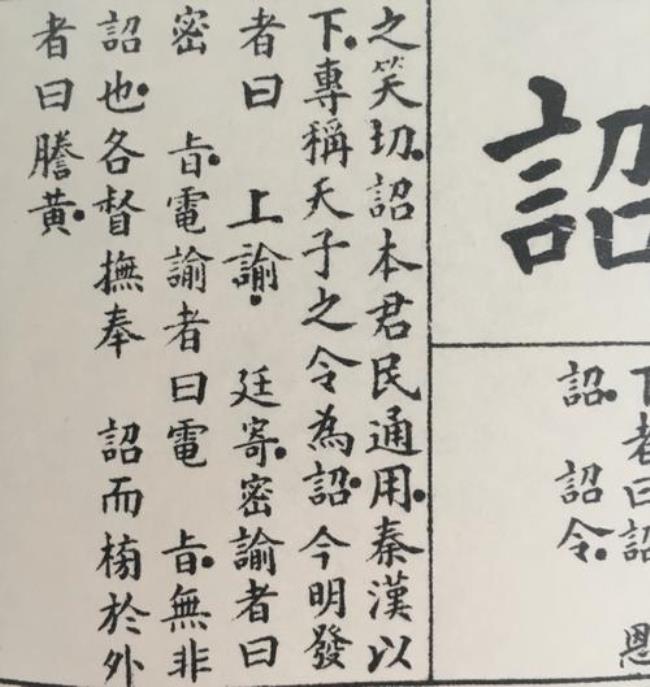 詔
下者曰詔 恩
詔。 詔令。
之笑切。詔本君民通用。秦漢以
下。專稱天子之令為詔。今明發
者曰 上諭。 廷寄。密諭者曰
密 㫖。電諭者曰電 㫖。無非
詔也。各督撫奉 詔而榜於外
者曰謄黃。